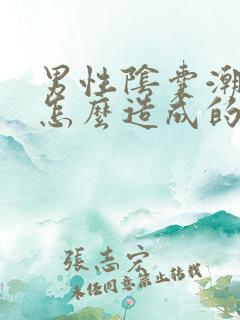 男性陰囊潮
怎麼造成的
張志宏
未經同意禁止轉載